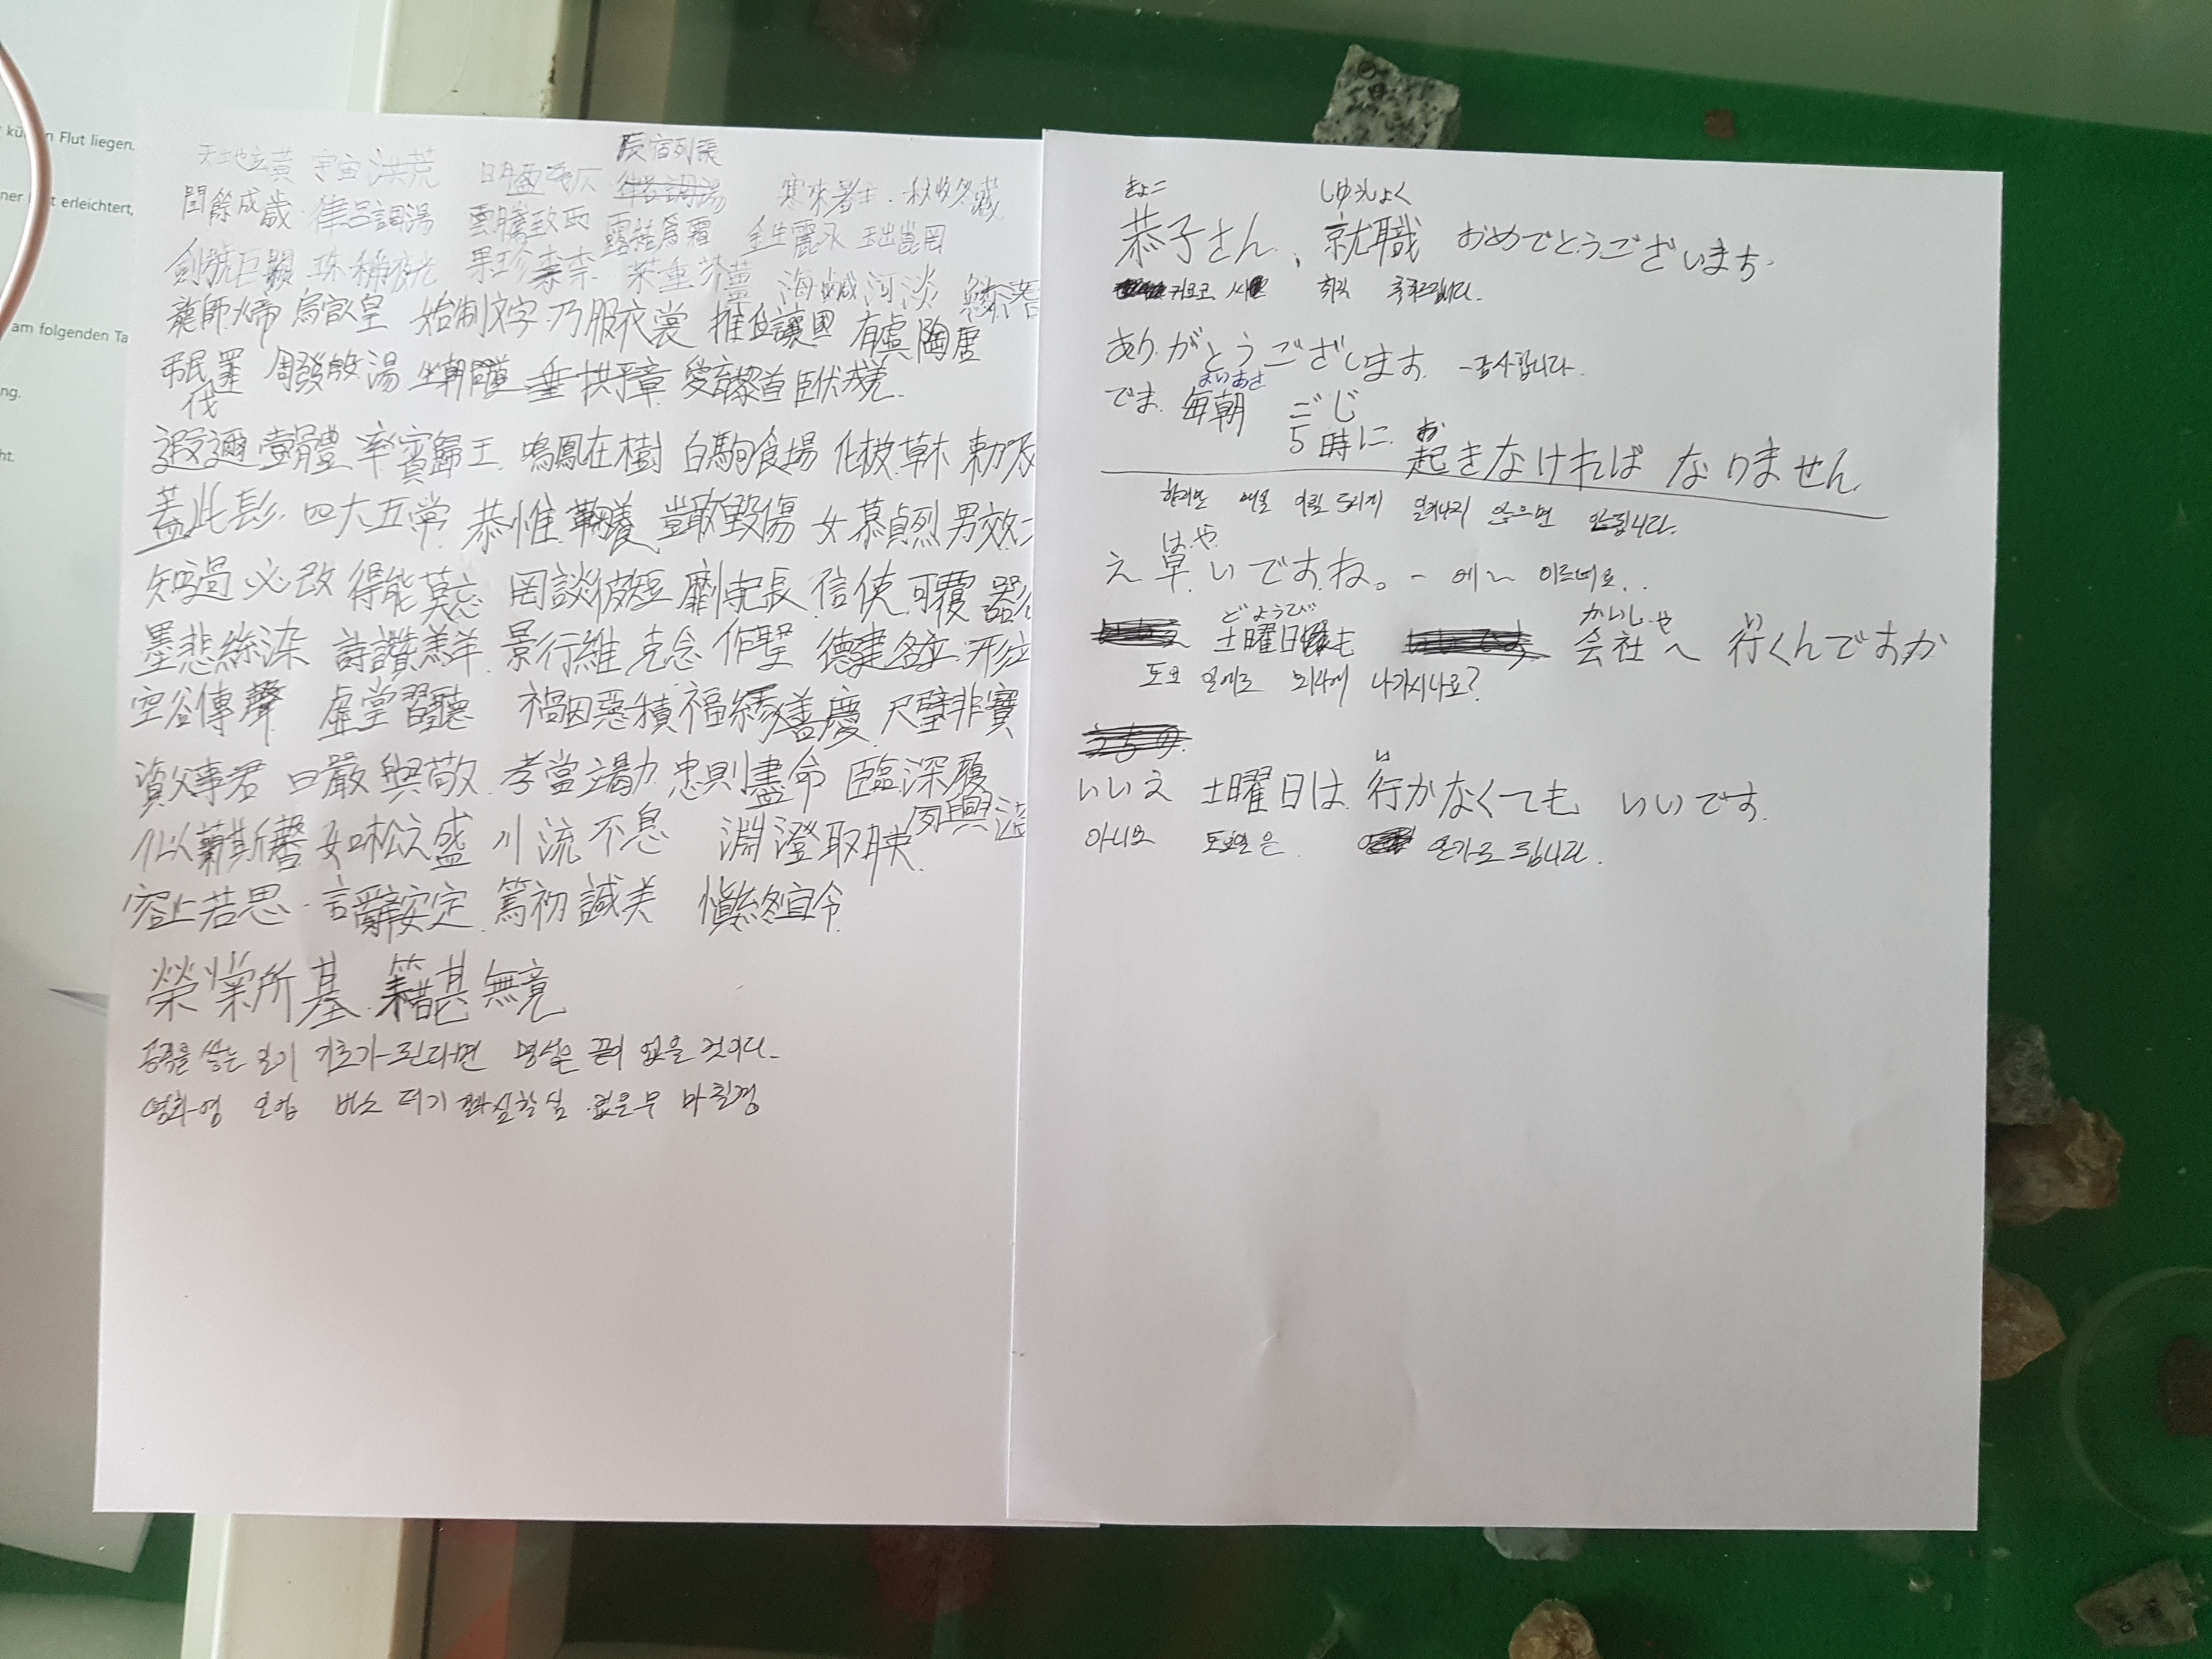 kü n Flut liegen.
ner erleichtert,
am folgenden Ta
ng.
ht.
天地玄黃 宇宙洪荒 日月盈昃 辰宿列張
寒來暑往 秋收冬藏
閏餘成歳 律呂調湯 雲騰致雨 露結爲霜 金生麗水 玉出崑岡
劍號巨闕 珠稱夜光 果珍李柰 菜重芥薑 海鹹河淡
龍師火帝 鳥官人皇 始制文字 乃服衣裳 推位讓國 有虞陶唐
弔民伐罪 周發殷湯 坐朝問道 垂拱平章 愛育黎首 臣伏戎羌
遐邇壹體 率賓歸王 鳴鳳在樹 白駒食場 化被草木 賴及
蓋此髟 四大五常 恭惟鞠養 豈敢毀傷 女慕貞烈 男效才
知過必改 得能莫忘 罔談彼短 靡恃己長 信使可覆 器
墨悲絲染 詩讚羔羊 景行維 克念作聖 德建名立 形
空谷傳聲 虛堂習聽 禍因惡積 福緣善慶 尺璧非寶
資父事君 曰嚴與敬 孝當竭力 忠則盡命 臨深履
似蘭斯馨 如松之盛 川流不息 淵澄取映 夙興
容止若思 言辭安定 篤初誠美 愼終宜令
榮業所基 籍甚無竟
기초가 된다면 명성은 끝이 없을 것이다.
영화 영 오업 바소 터기 심할심 없을무 마칠경
きょこ しゅうしょく
恭子さん、就職 おめでとうございまち.
교코 씨 취직 축하드립니다.
ありがとうございします. - 감사합니다.
まいあさ ごじ
でま 毎朝 5時に 起きなければ なりません
お
하지만 매일 아침 5시에 일어나지 않으면 안됩니다.
は や
え 草いですね。- 에~ 이르네요..
どようび かいしゃ い
土曜日も 会社へ 行くんですか
토요일에도 회사에 나가시나요?
うちの
い
いいえ 土曜日は 行かなくても いいです.
아니요 토요일은 안가도 됩니다.